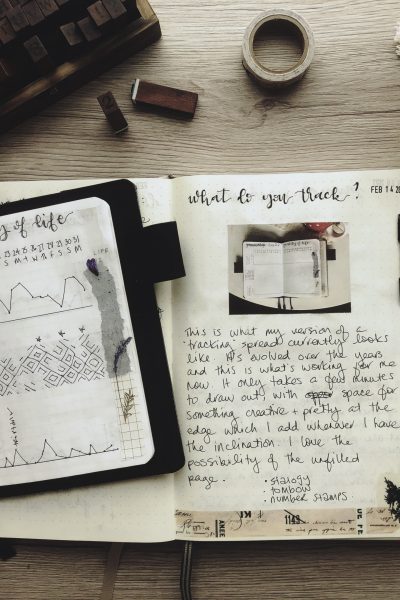 y of life
23 24 25 26 27 28 29 30 31
S M T W T F S S M
LIFE
what do you track?
FEB 14 20
This is what my version of a
"tracking" spread currently looks
like. It's evolved over the years
and this is what's working for me
now. It only takes a few minutes
to draw out, with space for
something creative + pretty at the
edge which I add whenever I have
the inclination. I love the
possibility of the unfilled
page.
• stalogy
• tombow
• number stamps.
ANEE
KI
1143